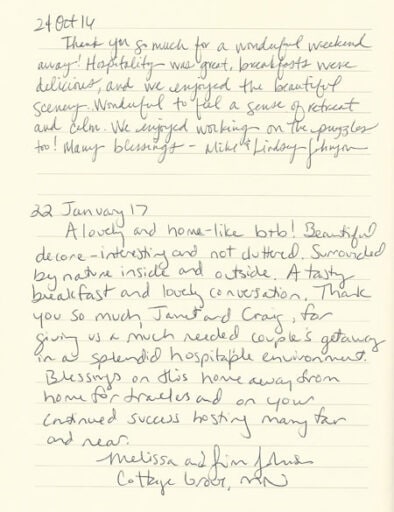 24 Oct 14
Thank you so much for a wonderful weekend
away! Hospitality was great, breakfasts were
delicious, and we enjoyed the beautiful
scenery. Wonderful to feel a sense of retreat
and calm. We enjoyed working on the puzzles
too! Many blessings - Mike & Lindsey Johnson
22 January 17
A lovely and home-like b+b! Beautiful
decore - interesting and not cluttered. Surrounded
by nature inside and outside. A tasty
breakfast and lovely conversation. Thank
you so much, Janet and Craig, for
giving us a much needed couple's getaway
in a splendid hospitable environment.
Blessings on this home away from
home for travelers and on your
continued success hosting many far
and near.
Melissa and Jim
Cottage Grove, MN